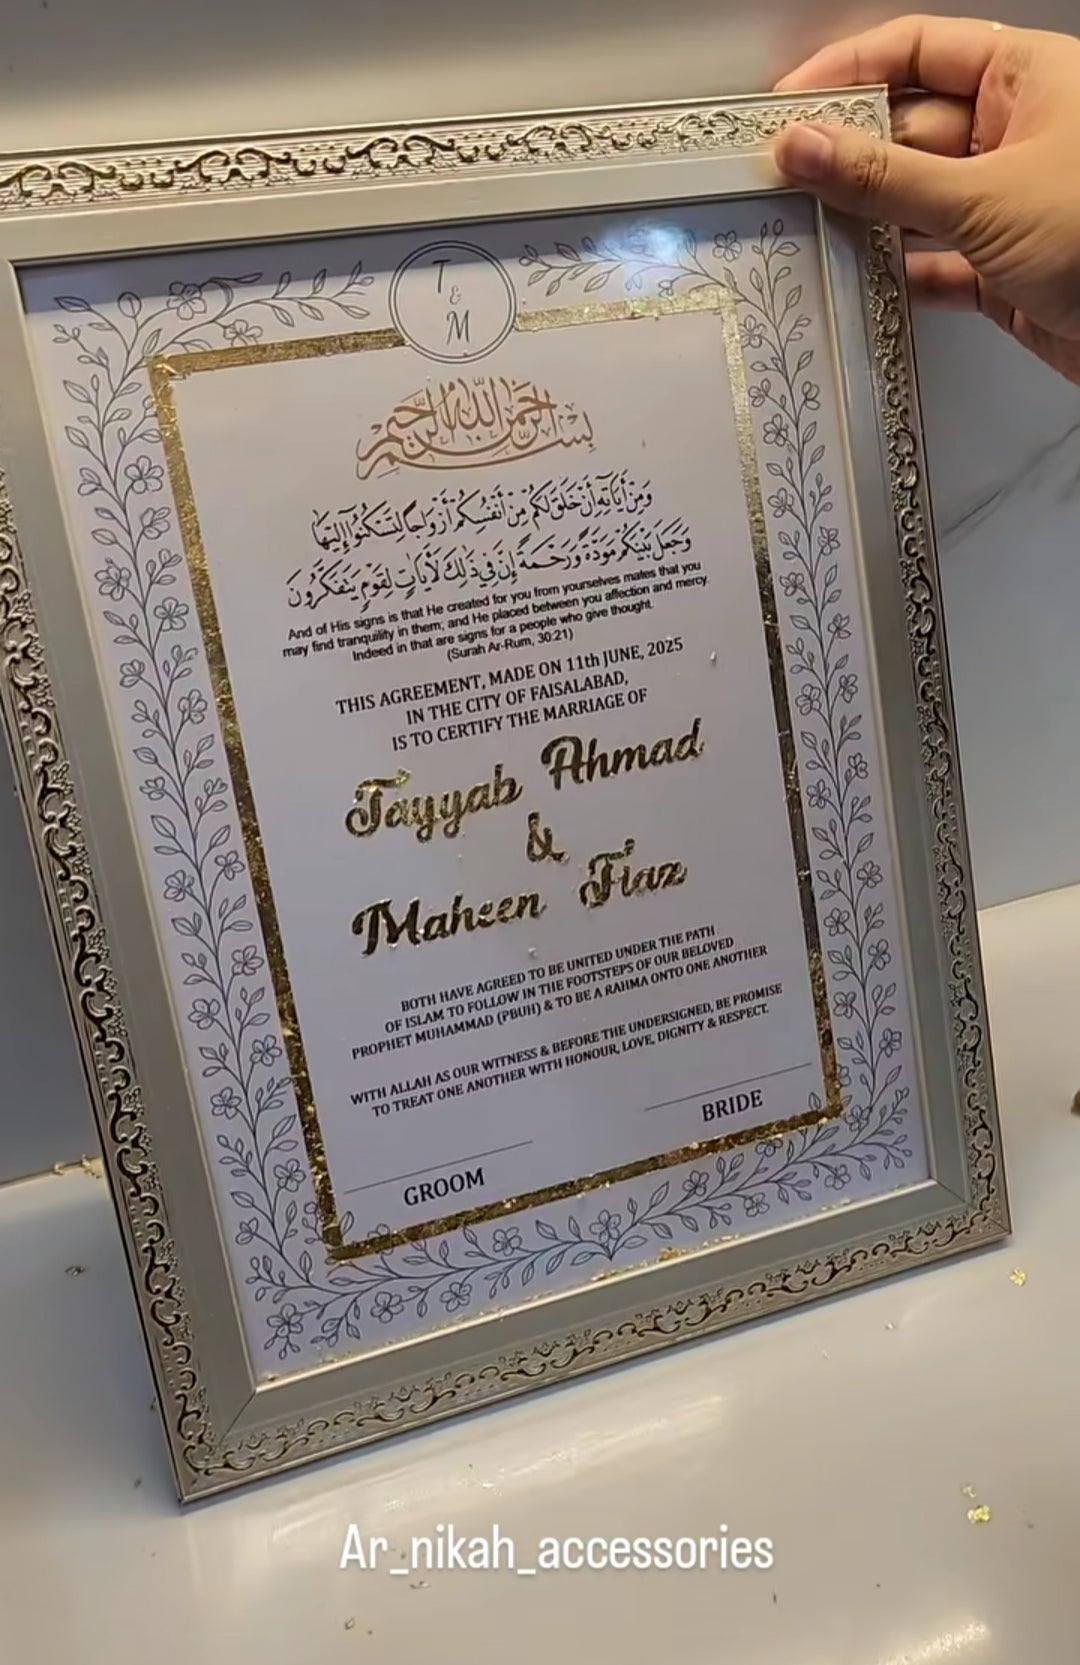 T
&
M
بسم الله الرحمن الرحيم
وَمِنْ أَيَاتِهِ أَنْ خَلَقَ لَكُم مِّنْ أَنْفُسِكُمْ أَزْوَاجًا لِتَسْكُنُوا إِلَيْهَا
وَجَعَلَ بَيْنَكُم مَّوَدَّةً وَرَحْمَةً إِنَّ فِي ذَلِكَ لَأَيَاتٍ لِقَوْمٍ يَتَفَكَّرُونَ
And of His signs is that He created for you from yourselves mates that you
may find tranquility in them; and He placed between you affection and mercy.
Indeed in that are signs for a people who give thought.
(Surah Ar-Rum, 30:21)
THIS AGREEMENT, MADE ON 11th JUNE, 2025
IN THE CITY OF FAISALABAD,
IS TO CERTIFY THE MARRIAGE OF
Tayyab Ahmad
&
Maheen Fiaz
BOTH HAVE AGREED TO BE UNITED UNDER THE PATH
OF ISLAM TO FOLLOW IN THE FOOTSTEPS OF OUR BELOVED
PROPHET MUHAMMAD (PBUH) & TO BE A RAHMA ONTO ONE ANOTHER
WITH ALLAH AS OUR WITNESS & BEFORE THE UNDERSIGNED, BE PROMISE
TO TREAT ONE ANOTHER WITH HONOUR, LOVE, DIGNITY & RESPECT.
GROOM
BRIDE
Ar_nikah_accessories